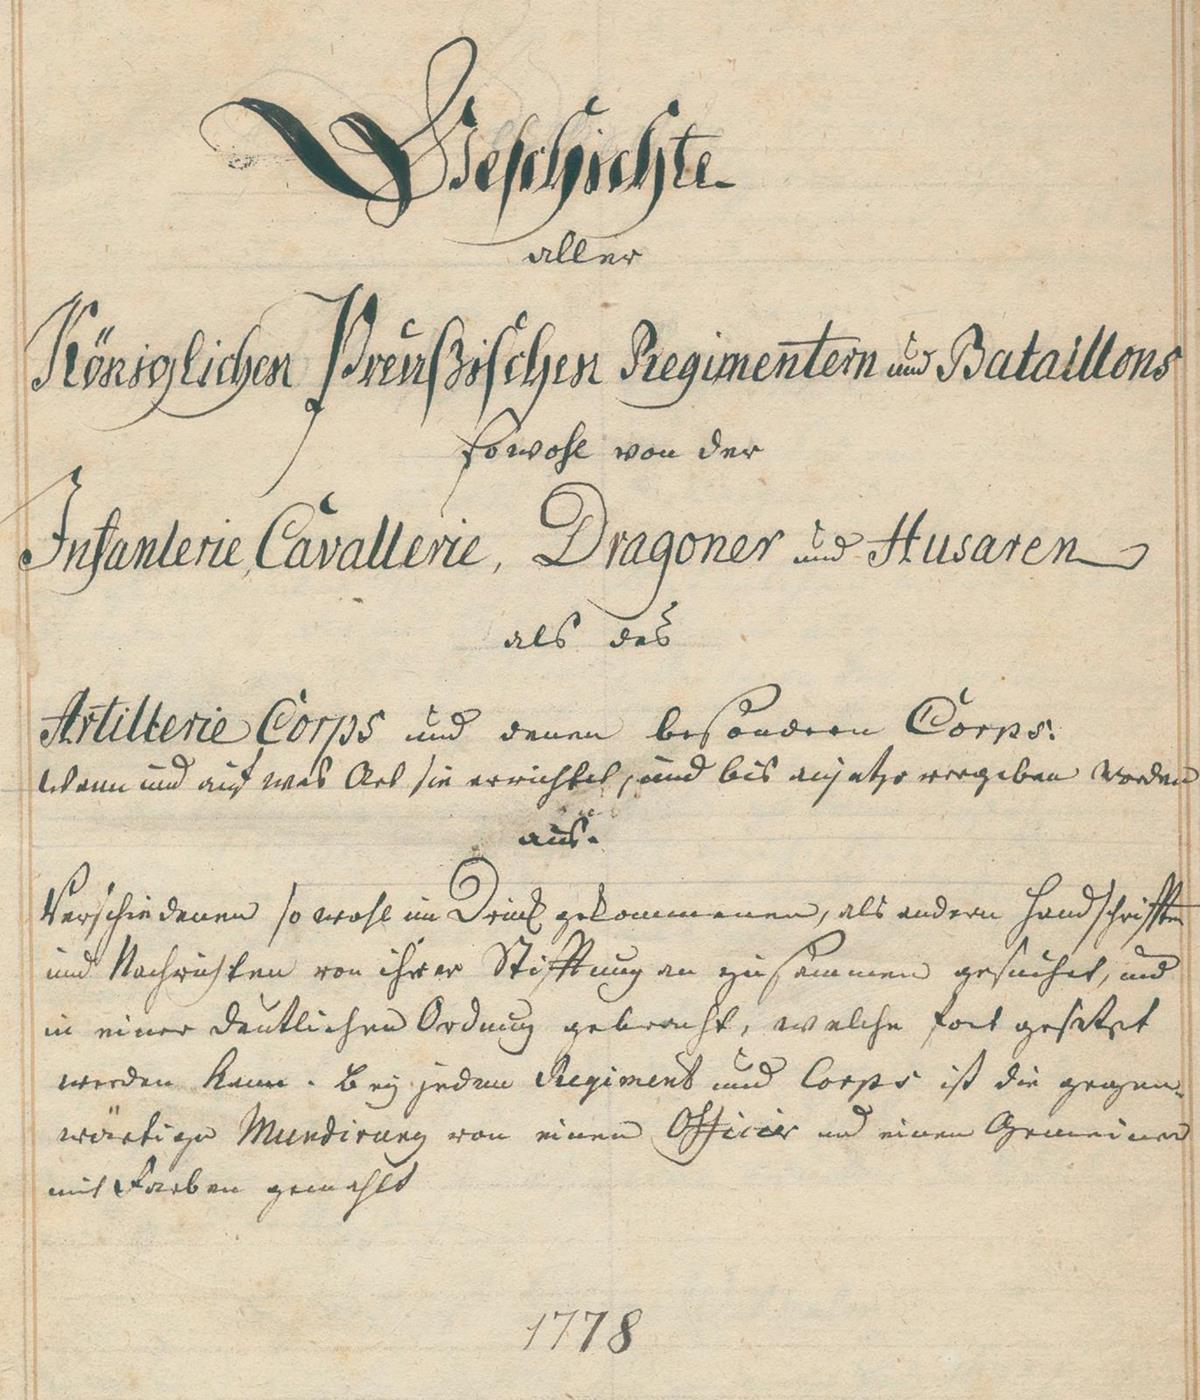 Geschichte
aller
Königlichen Preußischen Regimentern und Bataillons
sowohl von der
Infanterie, Cavallerie, Dragoner und Husaren
als des
Artillerie Corps und denen besondern Corps.
Wenn und auf was Art sie errichtet, und bis anjetzo vergeben worden
aus.
Verschiedenen so wohl im Druck gekommenen, als andern Handschrifften
und Nachrichten von ihrer Stifftung an zusammen gesuchet, und
in einer deutlichen Ordnung gebracht, welche fort gesetzet
werden kann. Bey jedem Regiment und Corps ist die gegen-
wärtige Mundirung von einen Officier und einen Gemeinen
mit Farben gemahlt
1778